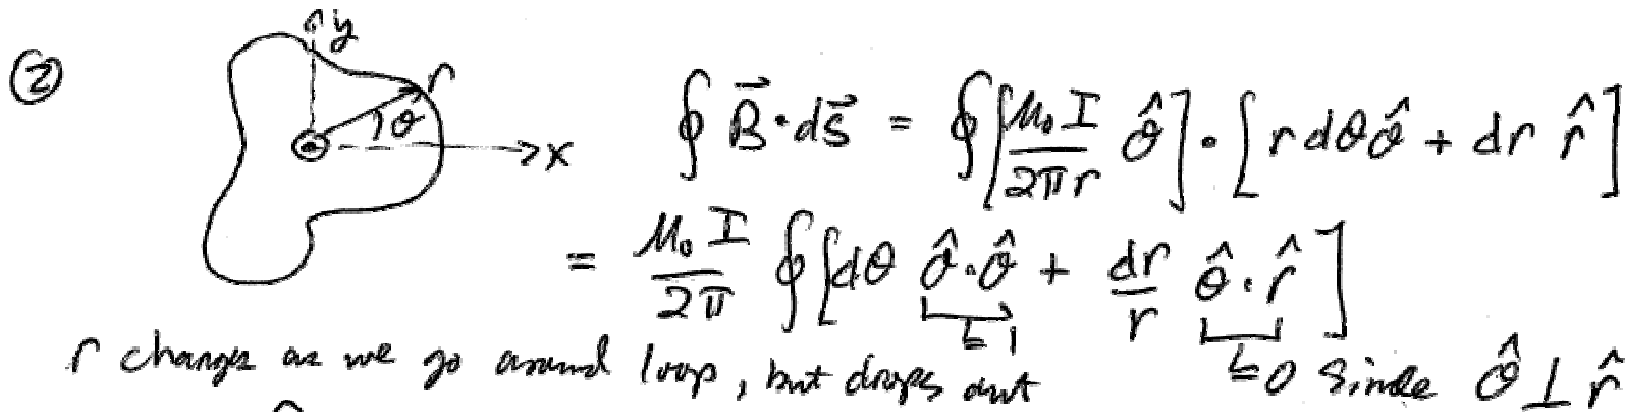 ②
y
r
θ
x
∮ B⃗·ds⃗ = ∮[μ₀I/2πr θ̂]·[r dθ θ̂ + dr r̂]
= μ₀I/2π ∮[dθ θ̂·θ̂ + dr/r θ̂·r̂]
↳1
r changes as we go around loop, but drops out
↳0 since θ̂ ⊥ r̂